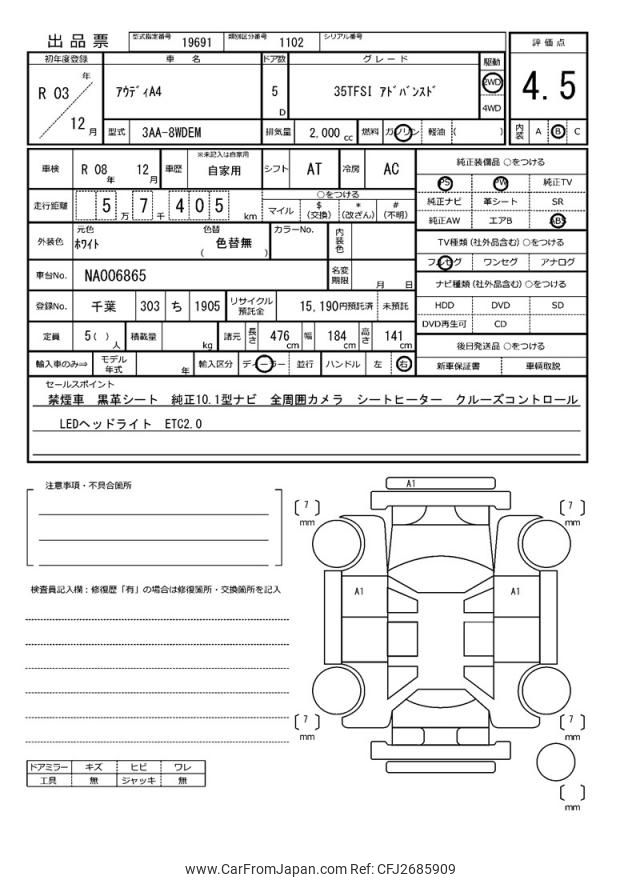 出品票 型式指定番号 19691 類別区分番号 1102 シリアル番号
初年度登録 車名 ドア数 グレード 駆動 評価点
R 03 年 12 月
ｱｳﾃﾞｨA4 5 D 35TFSI ｱﾄﾞﾊﾞﾝｽﾄﾞ 2WD 4WD
4.5
型式 3AA-8WDEM 排気量 2,000 cc 燃料 ガソリン 軽油 ( ) 内装 A B C
車検 R 08 年 12 月 車歴 ※未記入は自家用 自家用 シフト AT 冷房 AC
純正装備品 ○をつける
PS PW 純正TV
純正ナビ 革シート SR
純正AW エアB ABS
走行距離 5 万 7 千 4 0 5 km
○をつける
マイル $ (交換) * (改ざん) # (不明)
TV種類(社外品含む)○をつける
フルセグ ワンセグ アナログ
外装色 元色 ﾎﾜｲﾄ 色替 ( 色替無 ) カラーNo. 内装色
ナビ種類(社外品含む)○をつける
HDD DVD SD
DVD再生可 CD
車台No. NA006865 名変期限 月 日
登録No. 千葉 303 ち 1905 リサイクル預託金 15,190円預託済 未預託
定員 5( ) 人 積載量 kg 諸元 長さ 476 cm 幅 184 cm 高さ 141 cm
後日発送品 ○をつける
新車保証書 車輌取説
輸入車のみ⇒ モデル年式 年 輸入区分 ディーラー 並行 ハンドル 左 右
セールスポイント
禁煙車 黒革シート 純正10.1型ナビ 全周囲カメラ シートヒーター クルーズコントロール
LEDヘッドライト ETC2.0
注意事項・不具合箇所
検査員記入欄：修復歴「有」の場合は修復箇所・交換箇所を記入
A1
7 mm
7 mm
A1
A1
7 mm
7 mm
mm
ドアミラー キズ ヒビ ワレ
工具 無 ジャッキ 無
www.CarFromJapan.com Ref: CFJ2685909